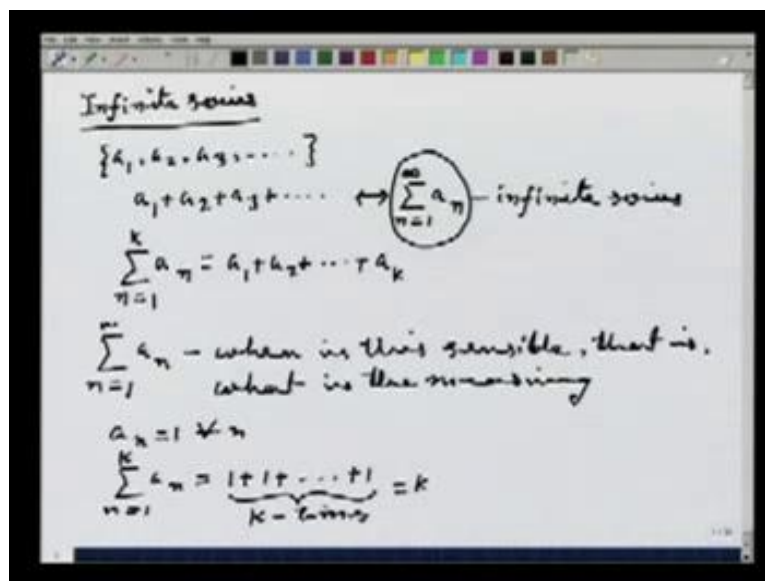 Infinite series
{a₁, a₂, a₃, ....}
a₁ + a₂ + a₃ + .... ↔ ∑_{n=1}^{∞} a_n - infinite series
∑_{n=1}^{k} a_n = a₁ + a₂ + ... + a_k
∑_{n=1}^{∞} a_n - when is this sensible, that is,
what is the meaning
a_n = 1 ∀ n
∑_{n=1}^{k} a_n = 1 + 1 + ... + 1 = k
k - times